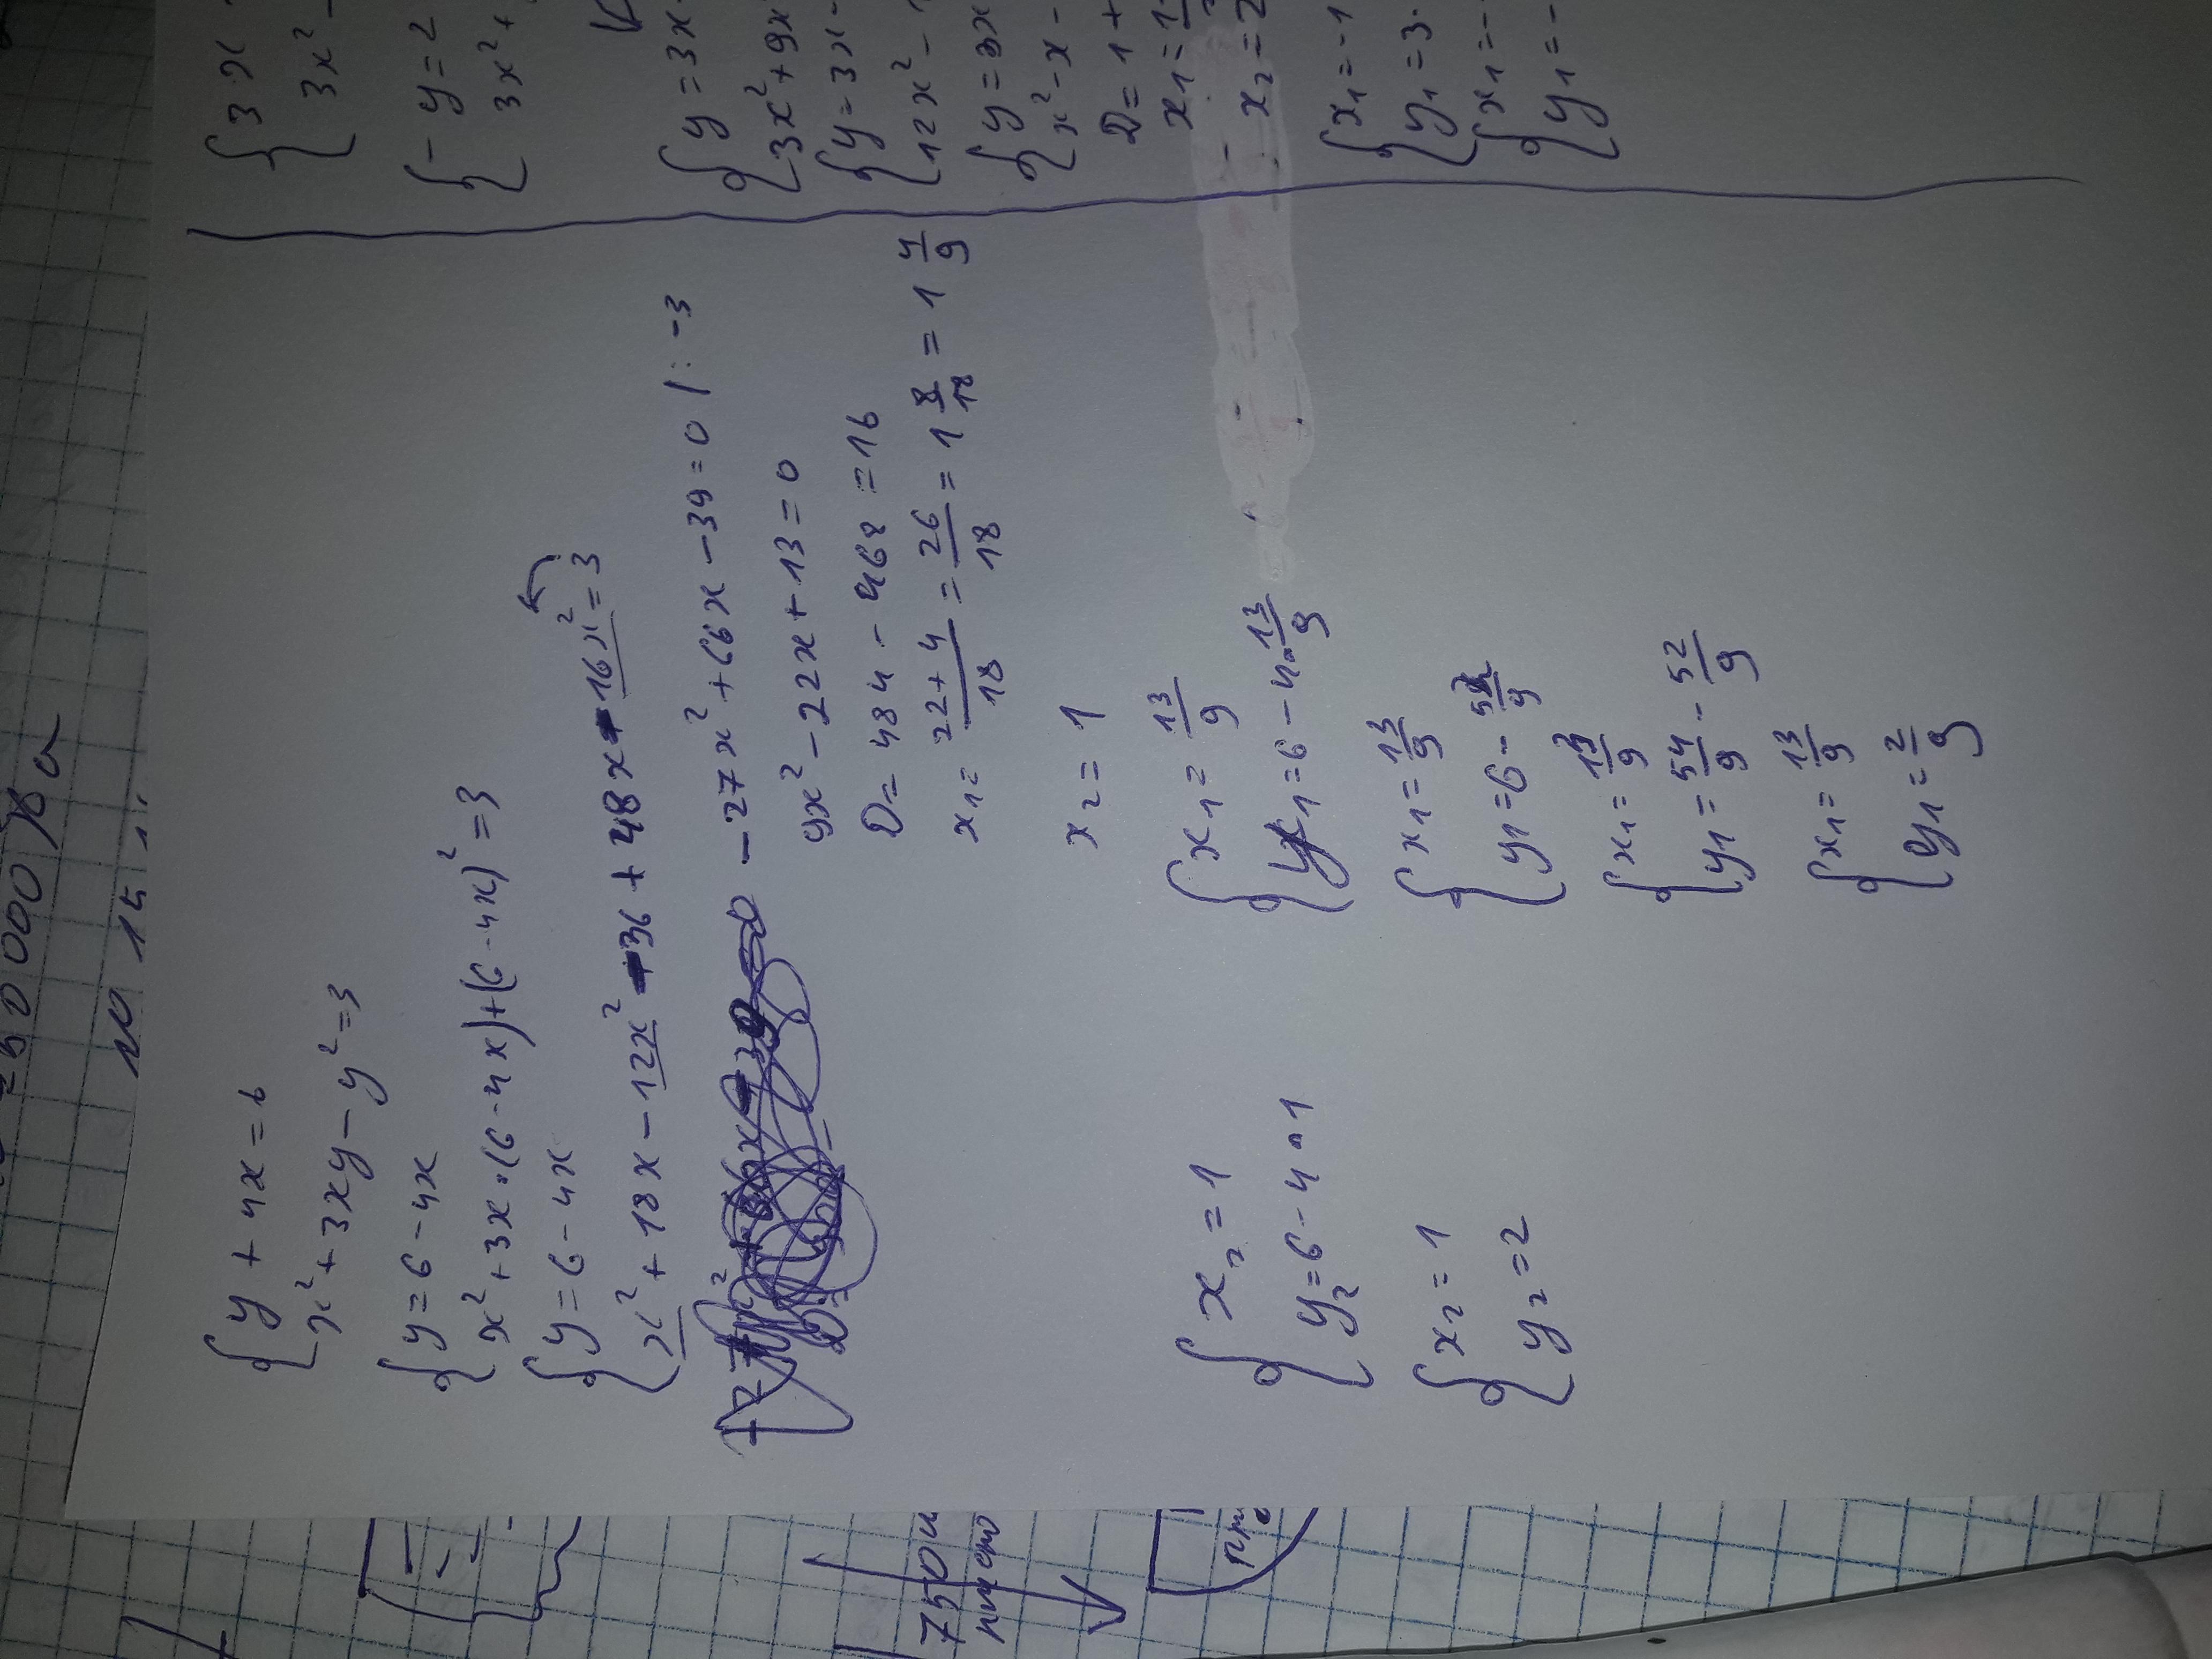 { y + 4x = 6
x² + 3xy - y² = 3
{ y = 6 - 4x
x² + 3x·(6 - 4x) + (6 - 4x)² = 3
{ y = 6 - 4x
x² + 18x - 12x² - 36 + 48x - 16x² = 3
-27x² + 66x - 39 = 0 | : -3
9x² - 22x + 13 = 0
D = 484 - 468 = 16
x₁ = (22+4)/18 = 26/18 = 1 8/18 = 1 4/9
x₂ = 1
{ x₂ = 1
y₂ = 6 - 4·1
{ x₂ = 1
y₂ = 2
{ x₁ = 13/9
y₁ = 6 - 4·13/9
{ x₁ = 13/9
y₁ = 6 - 52/9
{ x₁ = 13/9
y₁ = 54/9 - 52/9
{ x₁ = 13/9
y₁ = 2/9
{ 3x
3x² -
{ -y = 2
3x² +
{ y = 3x
3x² + 9x
{ y = 3x -
12x² -
{ y = 3x
x² - x -
D = 1 +
x₁ = 1
x₂ = 2
{ x₁ = -1
y₁ = 3·
{ x₁ = -
y₁ = -
N 15
750